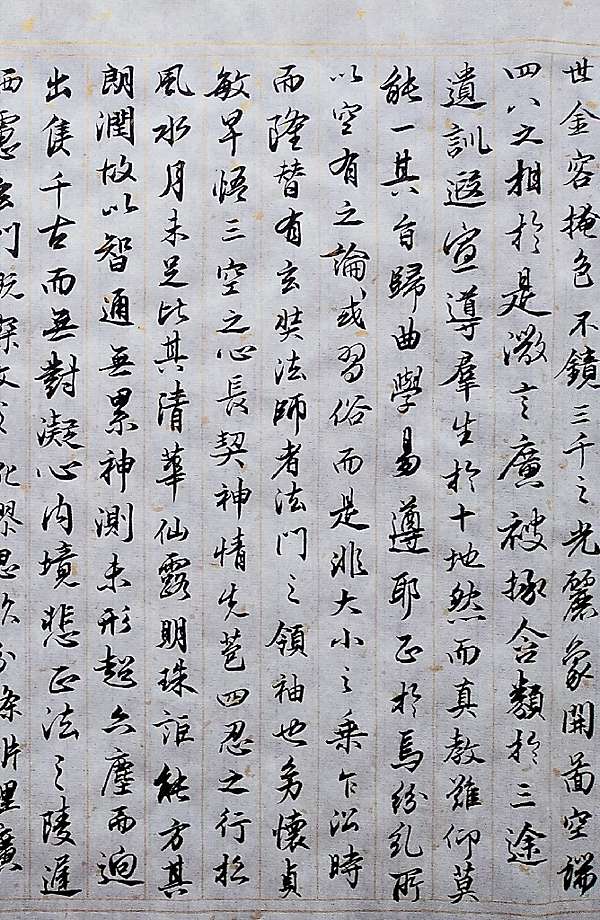 世金容掩色不鏡三千之光麗象開圖空端
四八之相於是微言廣被拯含類於三途
遺訓遐宣導羣生於十地然而真教難仰莫
能一其旨歸曲學易遵耶正於焉紛乱所
以空有之論或習俗而是非大小之乘乍沿時
而隆替有玄奘法師者法門之領袖也幼懷貞
敏早悟三空之心長契神情先苞四忍之行松
風水月未足比其清華仙露明珠詎能方其
朗潤故以智通無累神測未形超六塵而迥
出隻千古而無對凝心內境悲正法之陵遲
栖慮玄門慨深文之訛謬思欲分條析理廣